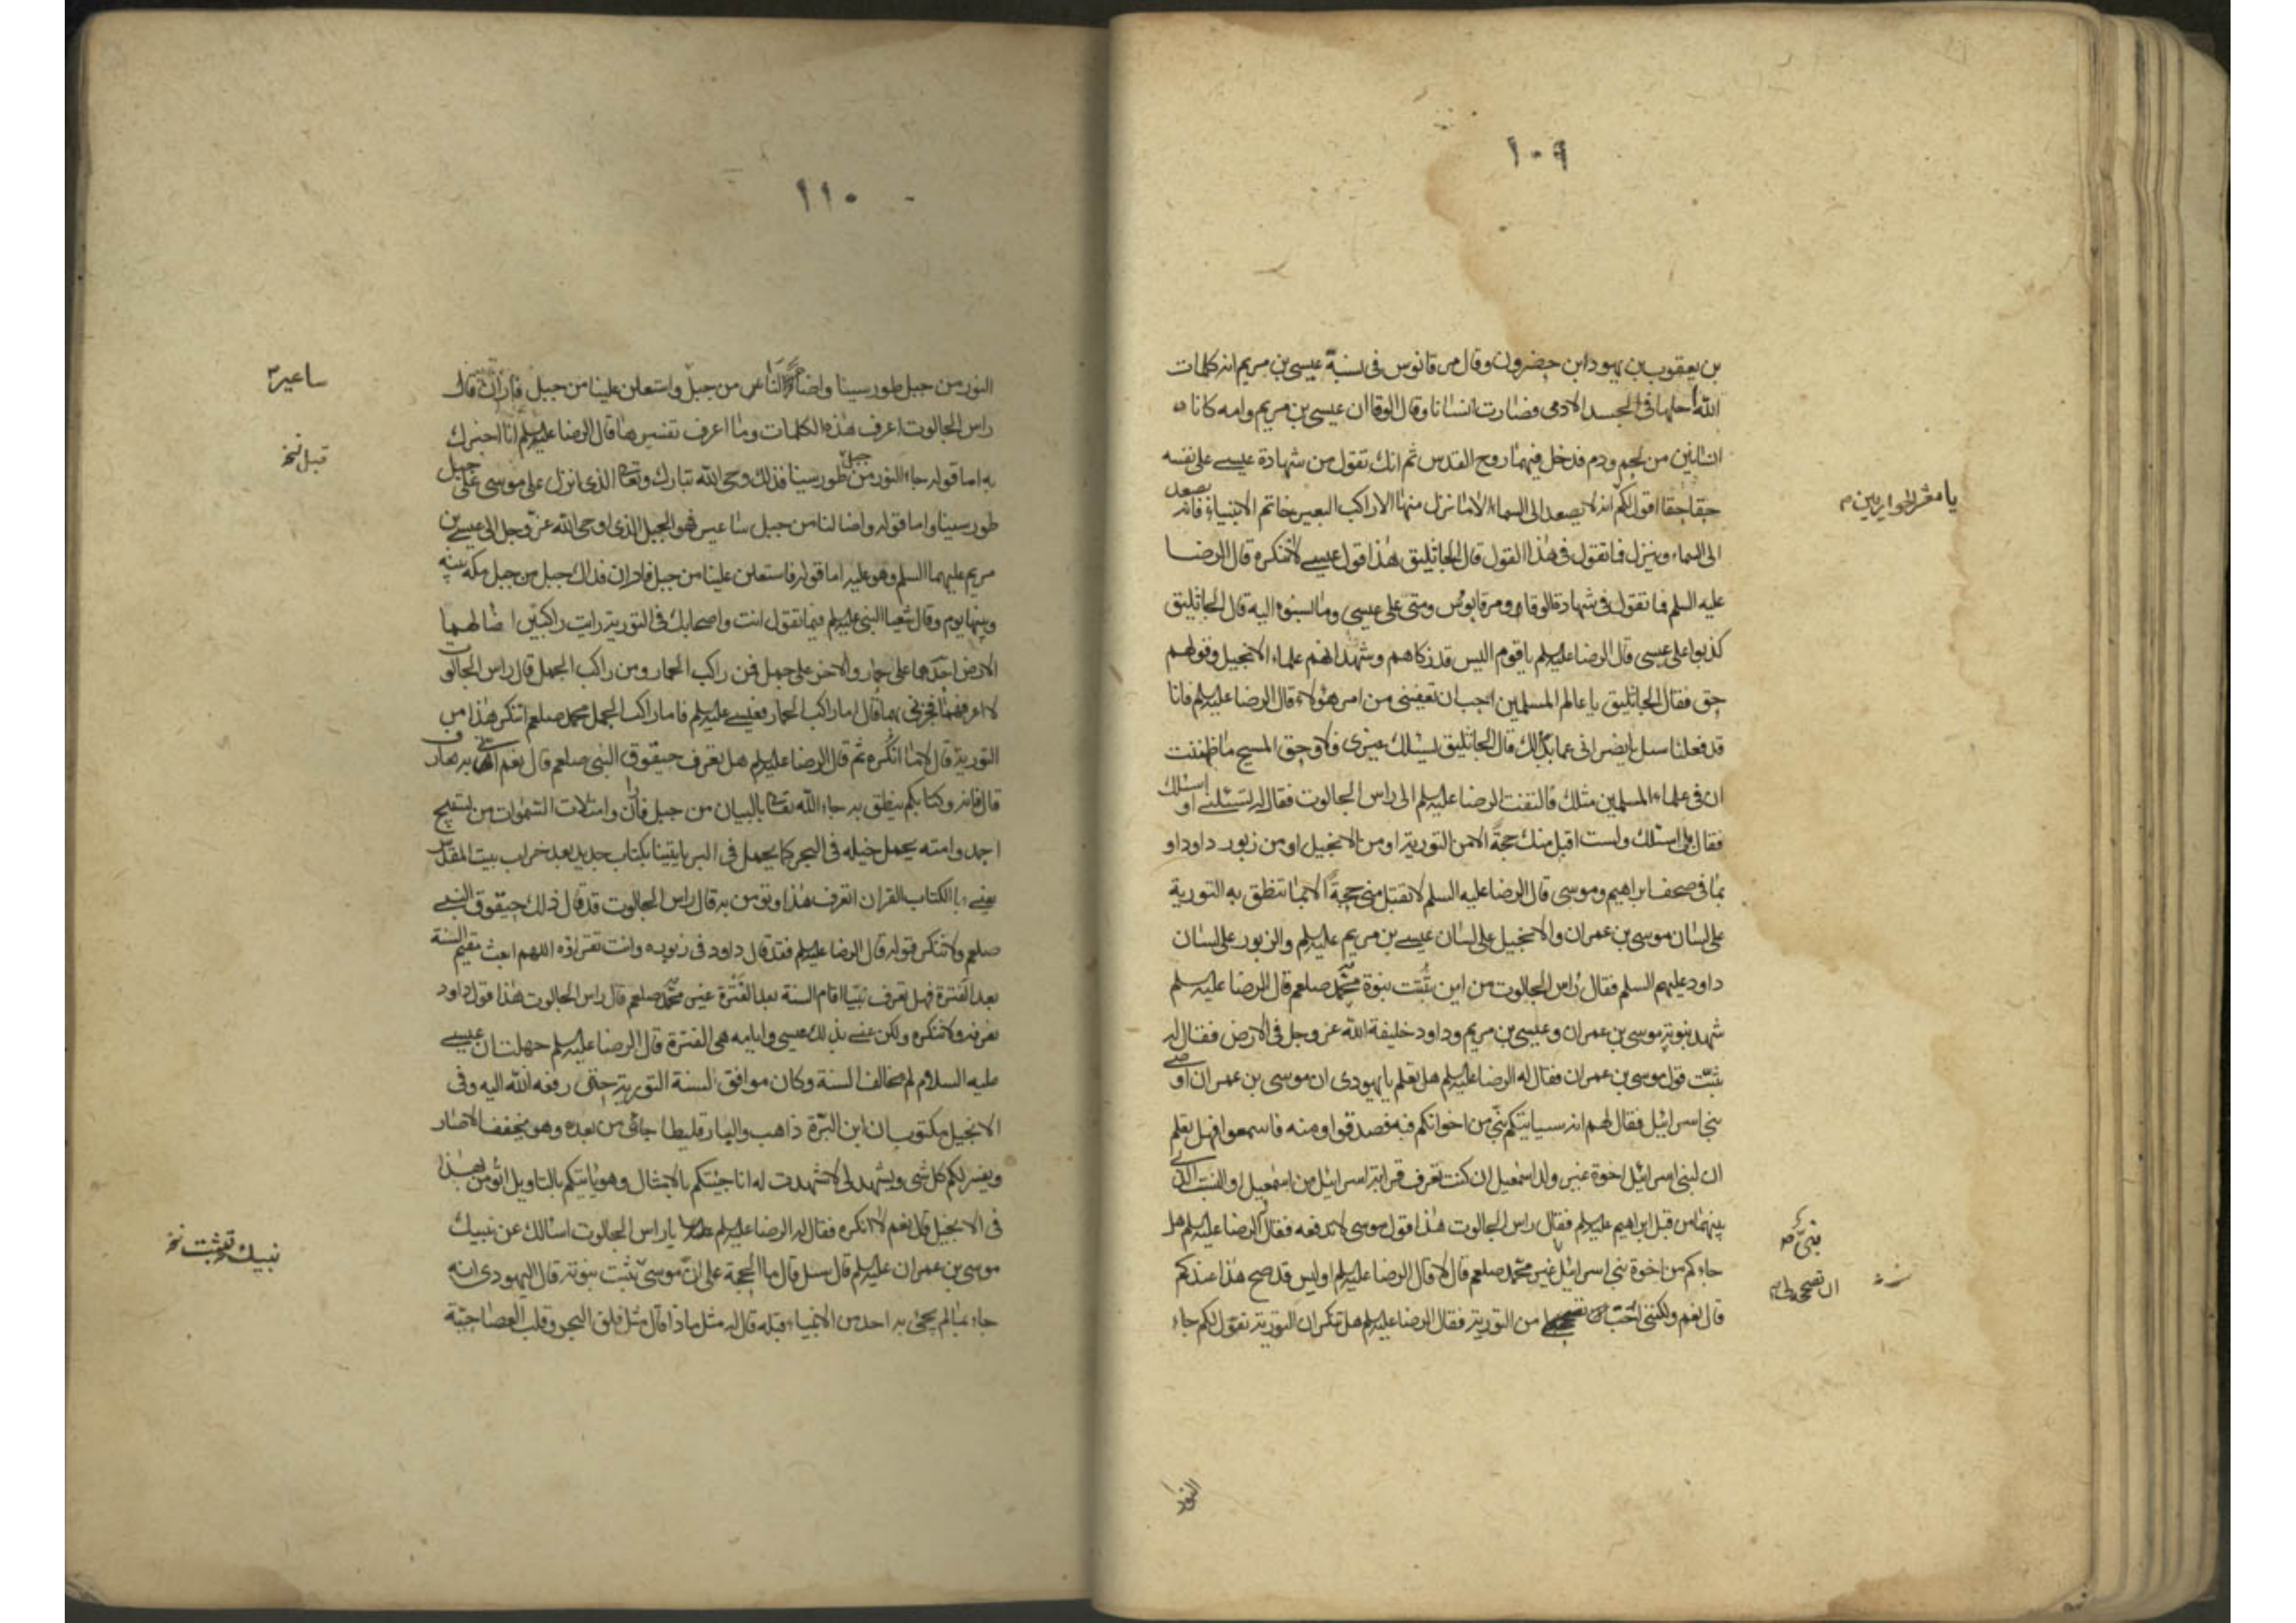 ١٠٩
بن يعقوب بن يهودا بن حضرون وقال مرقانوس فى نسبة عيسى بن مريم انه كلمات
الله احلها فى الجسد الادمى فصارت انسانا وقال الوقا ان عيسى بن مريم وامه كانا
انسانين من لحم ودم فدخل فيهما روح القدس ثم انك تقول من شهادة عيسى على نفسه
حقا حقا اقول لكم انه لا يصعد الى السماء الا ما نزل منها الا راكب البعير خاتم الانبياء فانه يصعد
يا معشر الحواريين
الى السماء وينزل فما تقول فى هذا القول قال الجاثليق هذا قول عيسى لا ننكره قال الرضا
عليه السلم فما تقول فى شهادة الوقا ومرقابوس ومتى على عيسى وما نسبوه اليه قال الجاثليق
كذبوا على عيسى قال الرضا عليه السلم يا قوم اليس قد زكاهم وشهد انهم علماء الانجيل وقولهم
حق فقال الجاثليق يا عالم المسلمين احب ان تعفينى من امر هؤلاء قال الرضا عليه السلم فانا
قد فعلنا سل يا نصرانى عما بدا لك قال الجاثليق ليسئلك غيرى فلا وحق المسيح ما ظننت
ان فى علماء المسلمين مثلك فالتفت الرضا عليه السلم الى راس الجالوت فقال له تسئلنى او اسئلك
فقال بل اسئلك ولست اقبل منك حجة الا من التورية او من الانجيل او من زبور داود او
بما فى صحف ابراهيم وموسى قال الرضا عليه السلم لا تقبل منى حجة الا بما تنطق به التورية
على لسان موسى بن عمران والانجيل على لسان عيسى بن مريم عليه السلم والزبور على لسان
داود عليهم السلم فقال راس الجالوت من اين تثبت نبوة محمد صلعم قال الرضا عليه السلم
شهد بنبوته موسى بن عمران وعيسى بن مريم وداود خليفة الله عز وجل فى الارض فقال له
ثبت قول موسى بن عمران فقال له الرضا عليه السلم هل تعلم يا يهودى ان موسى بن عمران اوصى
بنى اسرائيل فقال لهم انه سياتيكم نبى من اخوانكم فبه فصدقوا ومنه فاسمعوا فهل تعلم
ان لبنى اسرائيل اخوة غير ولد اسمعيل ان كنت تعرف قرابة اسرائيل من اسمعيل والنسب الذى
بينهما من قبل ابراهيم عليه السلم فقال راس الجالوت هذا قول موسى لا ندفعه فقال له الرضا عليه السلم هل
نبى
جاءكم من اخوة بنى اسرائيل غير محمد صلعم قال لا قال الرضا عليه السلم اوليس قد صح هذا عندكم
ان تصححه
قال نعم ولكنى احب ان تصححه من التورية فقال الرضا عليه السلم هل تنكر ان التورية تقول لكم جاء
النور
١١٠
النور من جبل طور سينا واضاء للناس من جبل واستعلن علينا من جبل فاران قال
ساعير
راس الجالوت اعرف هذه الكلمات وما اعرف تفسيرها قال الرضا عليه السلم انا اخبرك
قبل نخ
به اما قوله جاء النور من جبل طور سينا فذلك وحى الله تبارك وتعالى الذى انزل على موسى على جبل
طور سينا واما قوله واضا لنا من جبل ساعير فهو الجبل الذى اوحى الله عز وجل الى عيسى بن
مريم عليهما السلم وهو عليه اما قوله فاستعلن علينا من جبل فاران فذاك جبل من جبل مكة بينه
وبينها يوم وقال شعيا النبى عليه السلم فيما تقول انت واصحابك فى التورية رايت راكبين اضا لهما
الارض احدهما على حمار والاخر على جمل فمن راكب الحمار ومن راكب الجمل قال راس الجالوت
لا اعرفهما فخبرنى بهما قال اما راكب الحمار فعيسى عليه السلم فاما راكب الجمل محمد صلعم اتنكر هذا من
التورية قال لا ما انكره ثم قال الرضا عليه السلم هل تعرف حيقوق النبى صلعم قال نعم انى به عارف
قال فانه وكتابكم ينطق به جاء الله تعالى بالبيان من جبل فاران وامتلات السموات من تسبيح
احمد وامته يحمل خيله فى البحر كما يحمل فى البر ياتينا بكتاب جديد بعد خراب بيت المقدس
يعنى با الكتاب القران اتعرف هذا وتؤمن به قال راس الجالوت قد قال ذلك حيقوق النبى
صلعم ولا ننكر قوله قال الرضا عليه السلم فقد قال داود فى زبوره وانت تقراؤه اللهم ابعث مقيم السنة
بعد الفترة فهل تعرف نبيا اقام السنة بعد الفترة غير محمد صلعم قال راس الجالوت هذا قول داود
نعرفه ولا ننكره ولكن عنى بذلك عيسى وايامه هى الفترة قال الرضا عليه السلم جهلت ان عيسى
عليه السلام لم يخالف السنة وكان موافق لسنة التورية حتى رفعه الله اليه وفى
الانجيل مكتوب ان ابن البرة ذاهب والبارقليطا جائى من بعده وهو يخفف الاصار
ويفسر لكم كل شى ويشهد لى كما شهدت له انا جئتكم بالامثال وهو ياتيكم بالتاويل اتؤمن بهذا
فى الانجيل قال نعم لا انكره فقال له الرضا عليه السلم يا راس الجالوت اسالك عن نبيك
نبيك تثبت نخ
موسى بن عمران عليه السلم قال سل قال ما الحجة على ان موسى تثبت نبوته قال اليهودى انه
جاء بما لم يجئ به احد من الانبياء قبله قال له مثل ماذا قال مثل فلق البحر وقلب العصا حية